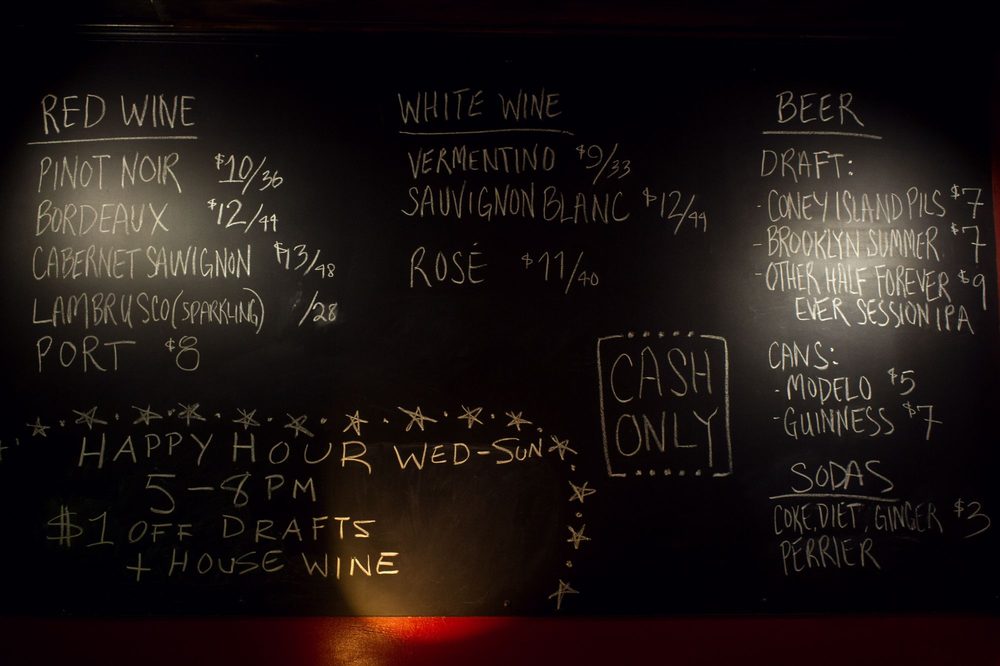 RED WINE
PINOT NOIR $10/36
BORDEAUX $12/44
CABERNET SAUVIGNON $13/48
LAMBRUSCO (SPARKLING) /28
PORT $8
WHITE WINE
VERMENTINO $9/33
SAUVIGNON BLANC $12/44
ROSÉ $11/40
BEER
DRAFT:
- CONEY ISLAND PILS $7
- BROOKLYN SUMMER $7
- OTHER HALF FOREVER $9
EVER SESSION IPA
CANS:
- MODELO $5
- GUINNESS $7
SODAS
COKE, DIET, GINGER $3
PERRIER
CASH
ONLY
HAPPY HOUR WED-SUN
5-8PM
$1 OFF DRAFTS
+ HOUSE WINE